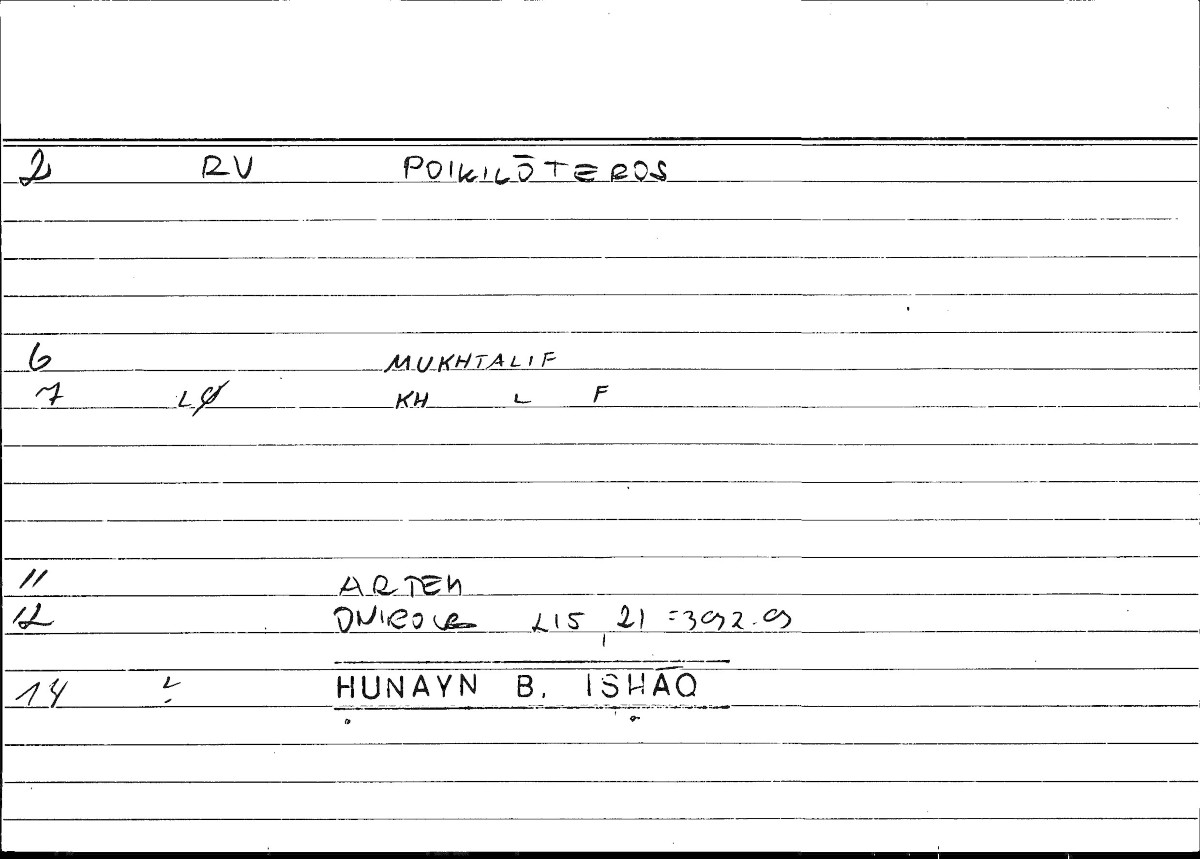 2 RV POIKILŌTEROS
6 MUKHTALIF
7 LØ KH L F
11 ARTEM
12 L15, 21 =392.9
14 HUNAYN B. ISHĀQ